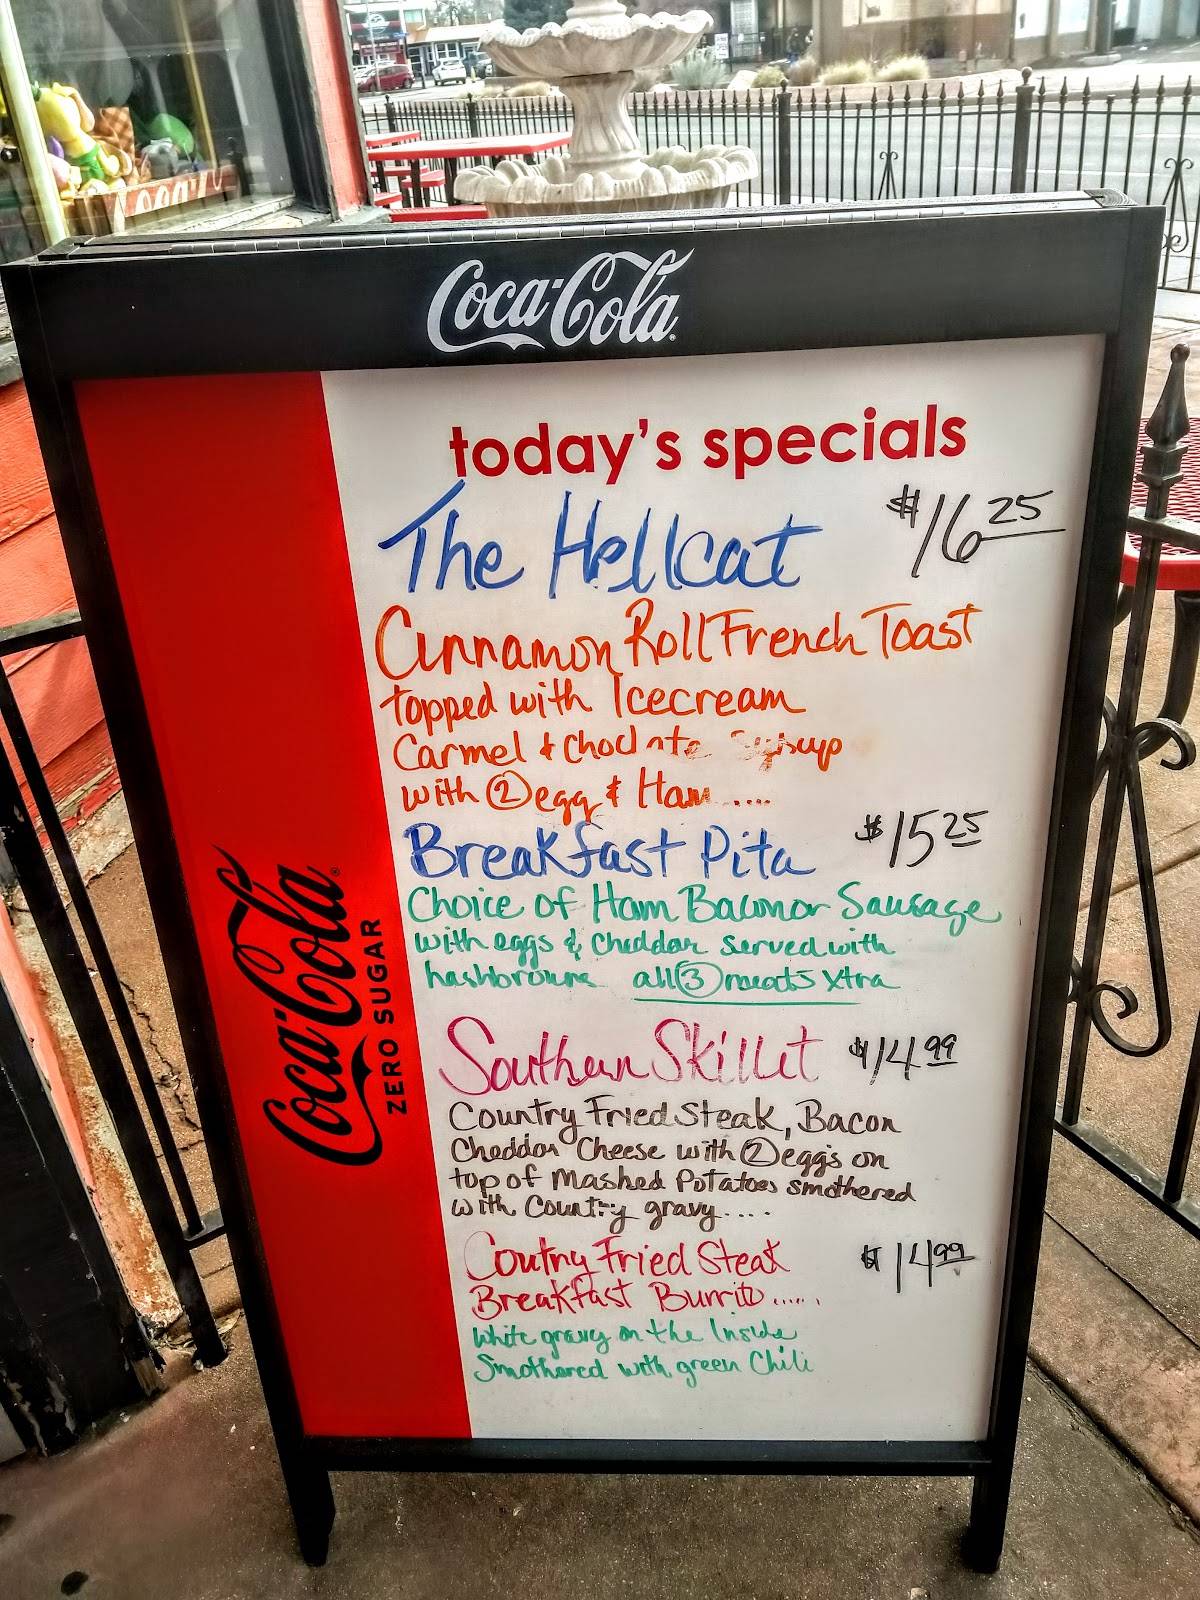 Coca-Cola
today's specials
The Hellcat $16 25
Cinnamon Roll French Toast
topped with Icecream
Carmel & Choclate Syrup
with 2 egg & Ham.....
Breakfast Pita $15 25
Choice of Ham Bacon or Sausage
with eggs & cheddar served with
hashbrowns all 3 meats Xtra
Southern Skillet $14.99
Country Fried Steak, Bacon
Cheddar Cheese with 2 eggs on
top of Mashed Potatoes smothered
with Country gravy....
Coutny Fried Steak $14 99
Breakfast Burrito.....
White gravy on the Inside
Smothered with green Chili
Coca-Cola
ZERO SUGAR